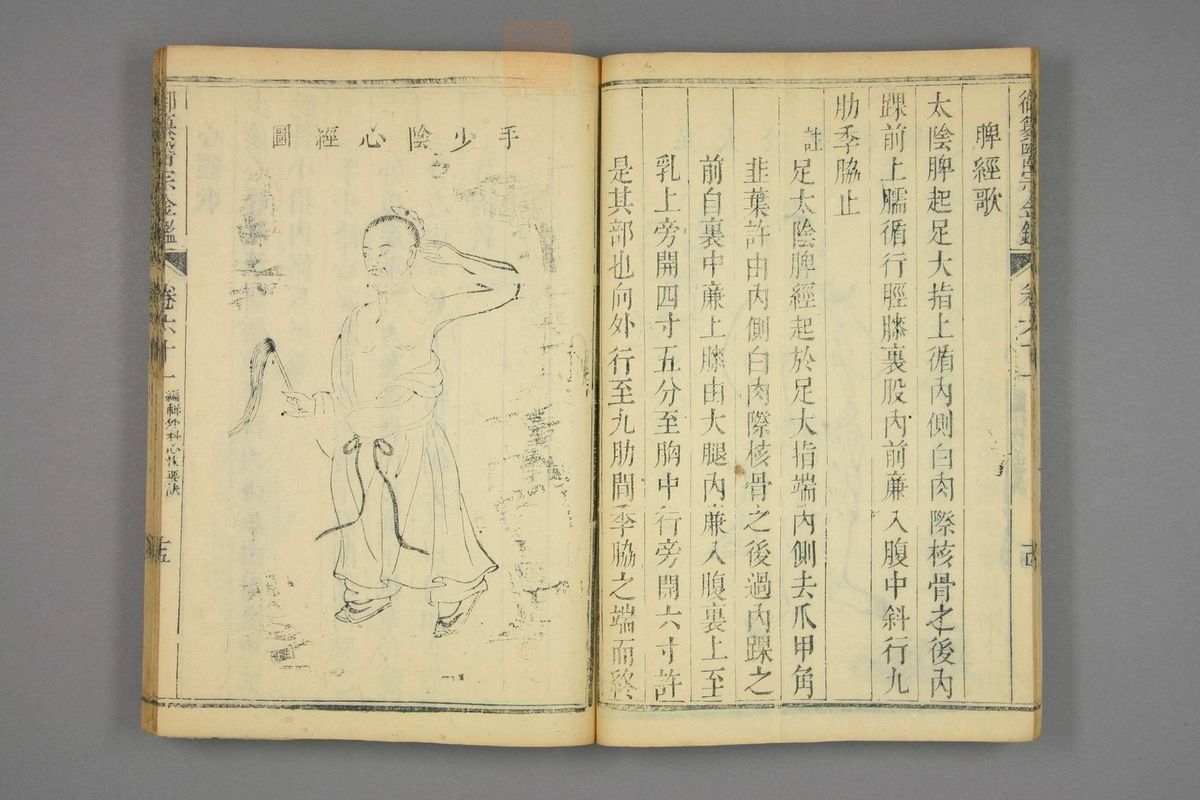 御纂醫宗金鑑
卷六十一
十四
脾經歌
太陰脾起足大指上循內側白肉際核骨之後內
踝前上臑循行脛膝裏股內前廉入腹中斜行九
肋季脇止
註足太陰脾經起於足大指端內側去爪甲角
韭葉許由內側白肉際核骨之後過內踝之
前自裏中廉上膝由大腿內廉入腹裏上至
乳上旁開四寸五分至胸中行旁開六寸許
是其部也向外行至九肋間季脇之端而終
手少陰心經圖
御纂醫宗金鑑
卷六十一
編輯外科心法要訣
十五